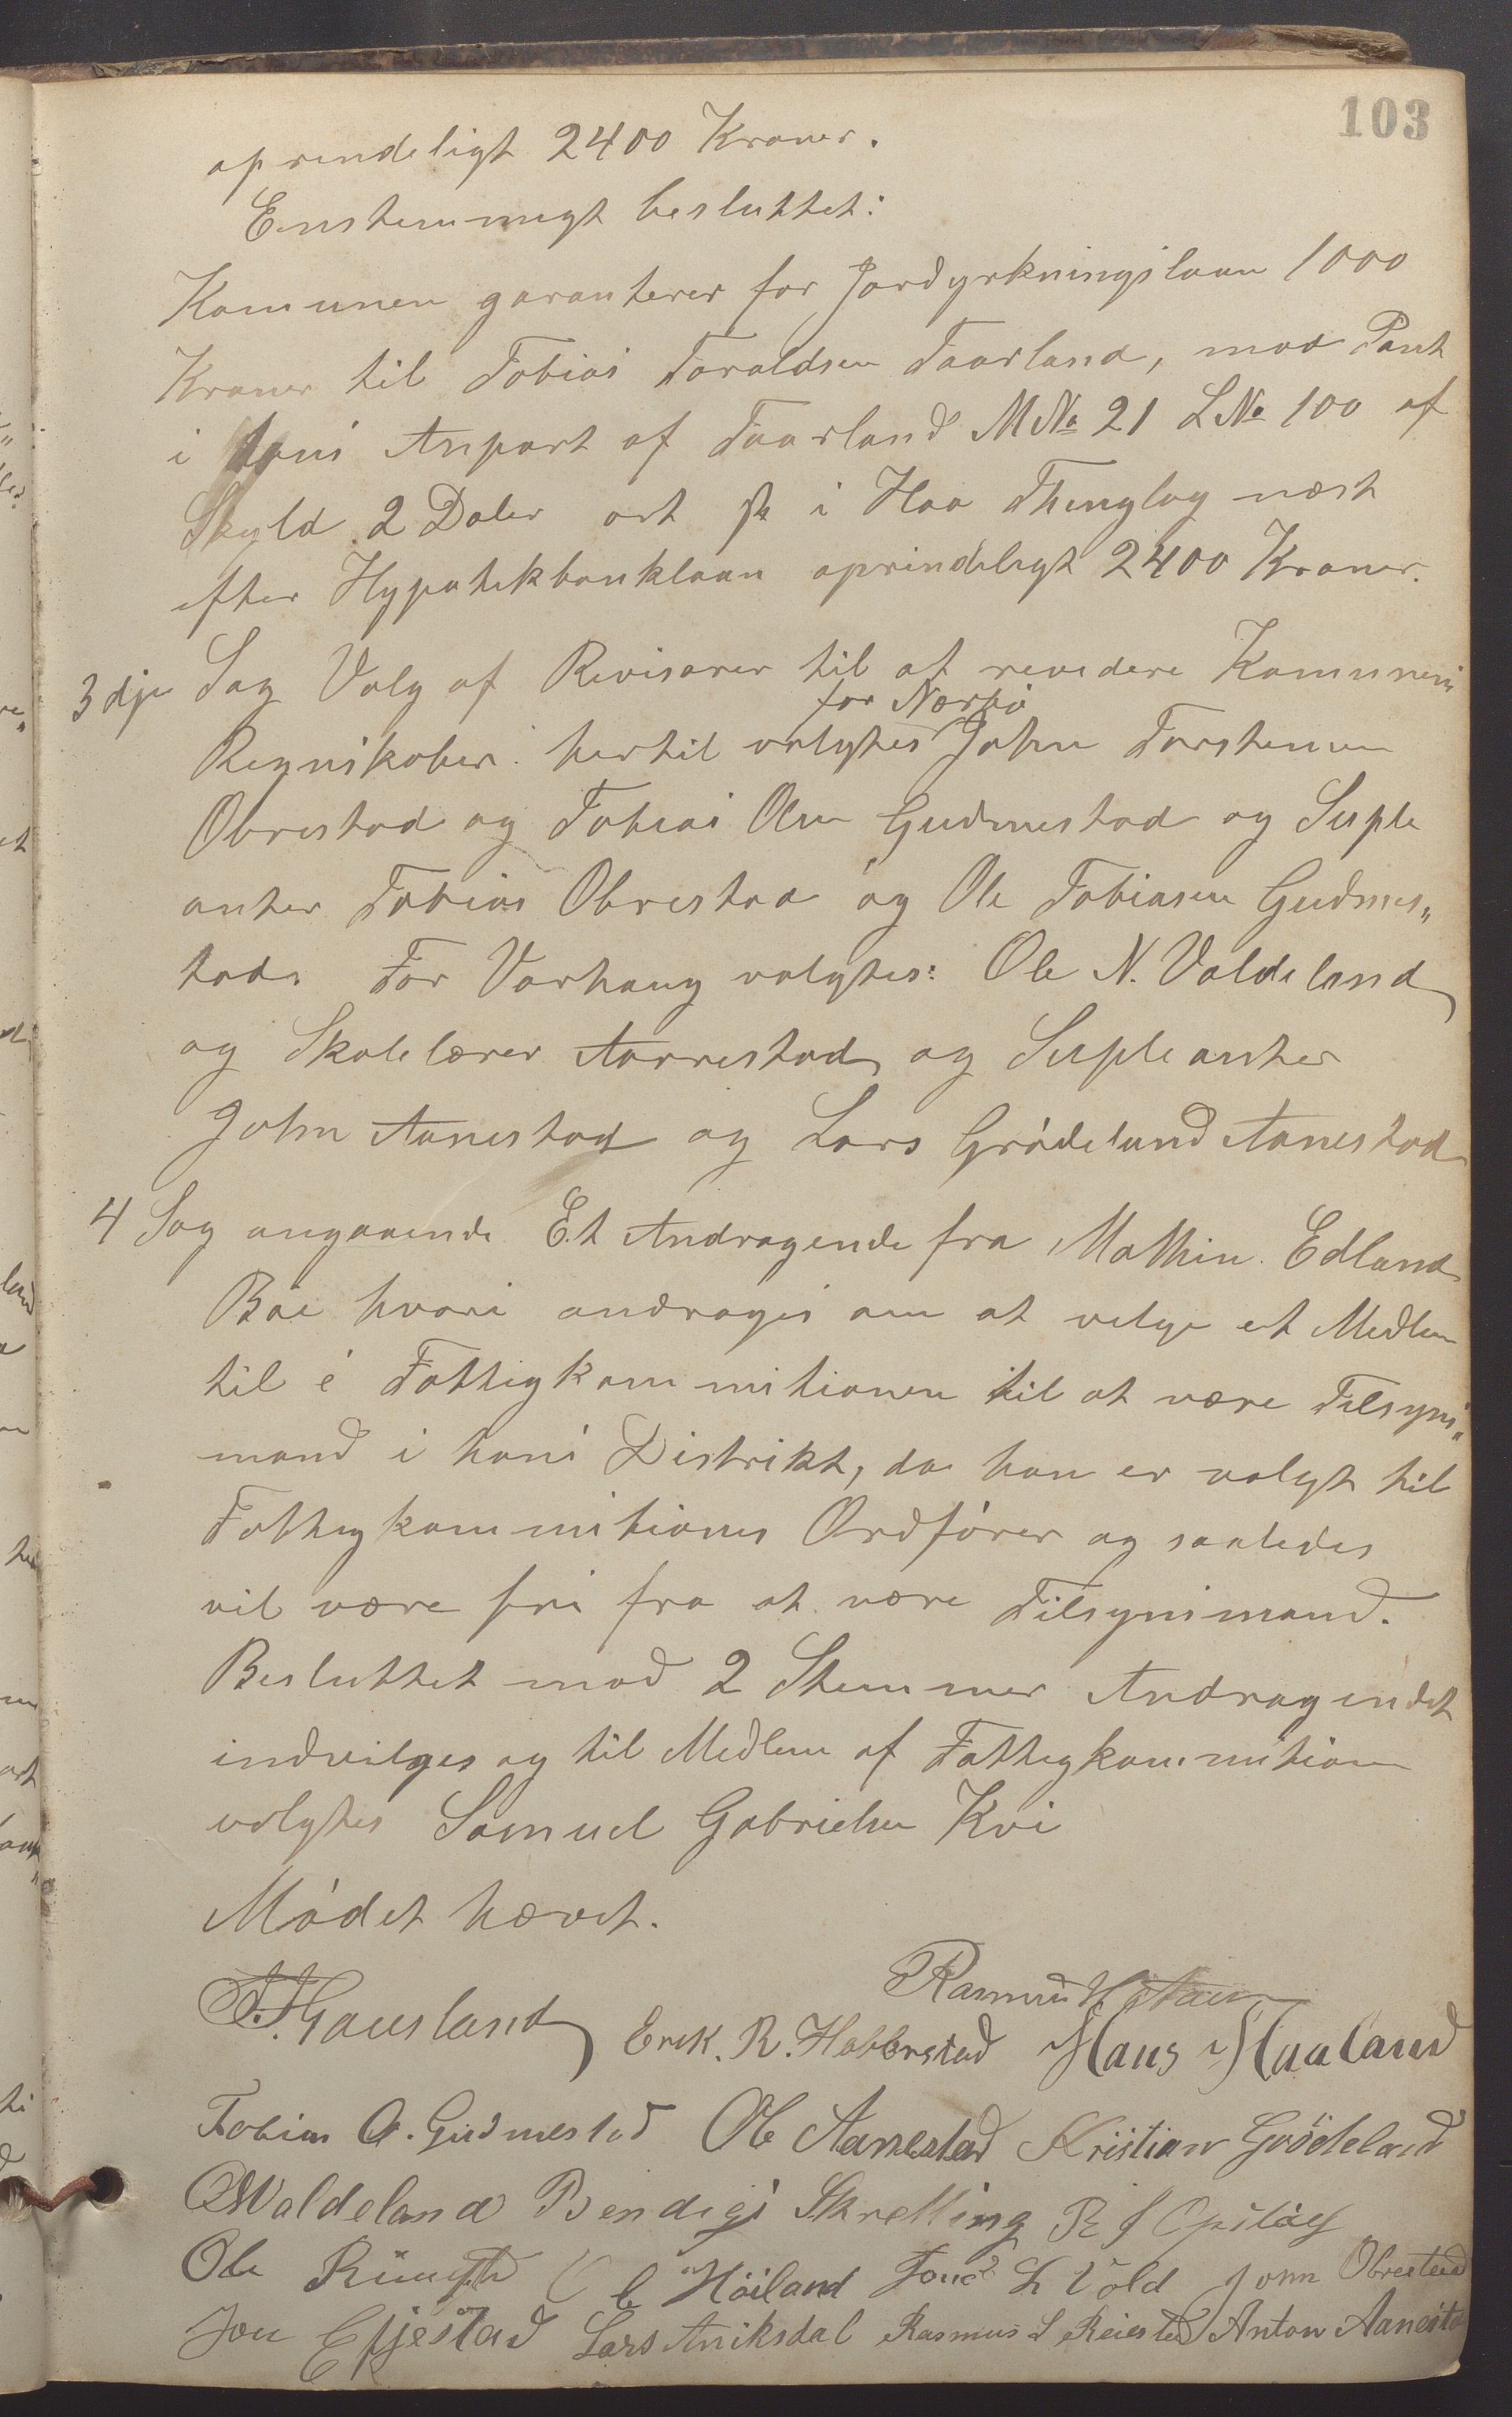 103
oprindeligt 2400 Kroner.
Enstemmigt besluttet:
Komunen garanterer for Jordyrkningslaan 1000
Kroner til Tobias Toroldsen Taarland, mod Pant
i hans Anpart af Taarland M№ 21 L№ 100 af
Skyld 2 Daler ort sk i Haa Thinglag næst
efter Hypothekbanklaan oprindeligt 2400 Kroner.
3dje Sag Valg af Revisorer til at revidere Komunens
for Nærbø
Regnskaber. hertil valgtes John Torstensen
Obrestad og Tobias Olsen Gudmestad og Suple
anter Tobias Obrestad og Ole Tobiasen Gudmes„
tad. For Varhaug valgtes: Ole N. Valdeland
og Skolelærer Aarrestad og Supleanter
John Aanestad og Lars Grödeland Aanestad
4 Sag angaaende Et Andragende fra Mathin. Edland
Böe hvori andrages om at velge et Medlem
til i Fattigkommitionen til at være Tilsyns„
mand i hans Distrikt, da han er valgt til
Fattigkommitiones Ordförer og saaledes
vil være fri fra at være Tilsynsmand.
Besluttet mod 2 Stemmer Andragendet
indvilges og til Medlem af Fattigkommition
valgtes Samuel Gabrielsen Kvi
Mödet hævet.
Rasmus
Gausland Erik. R. Habberstad Hans Haaland
Tobias O. Gudmestad Ole Aanestad Kristian Grödeland
ONValdeland Bendigs Skretting R J Opstad
Ole Höiland L Vold John Obrestad
Jon Efjestad Lars Aniksdal Rasmus S Reiestad Anton Aanestad